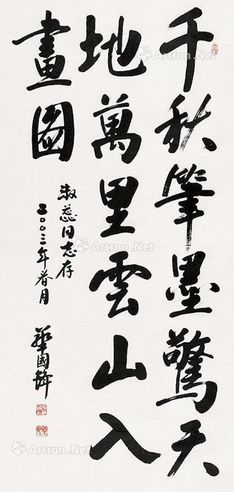 千秋筆墨驚天
地萬里雲山入
畫圖
淑蕊同志存
二〇〇三年春月
華國鋒